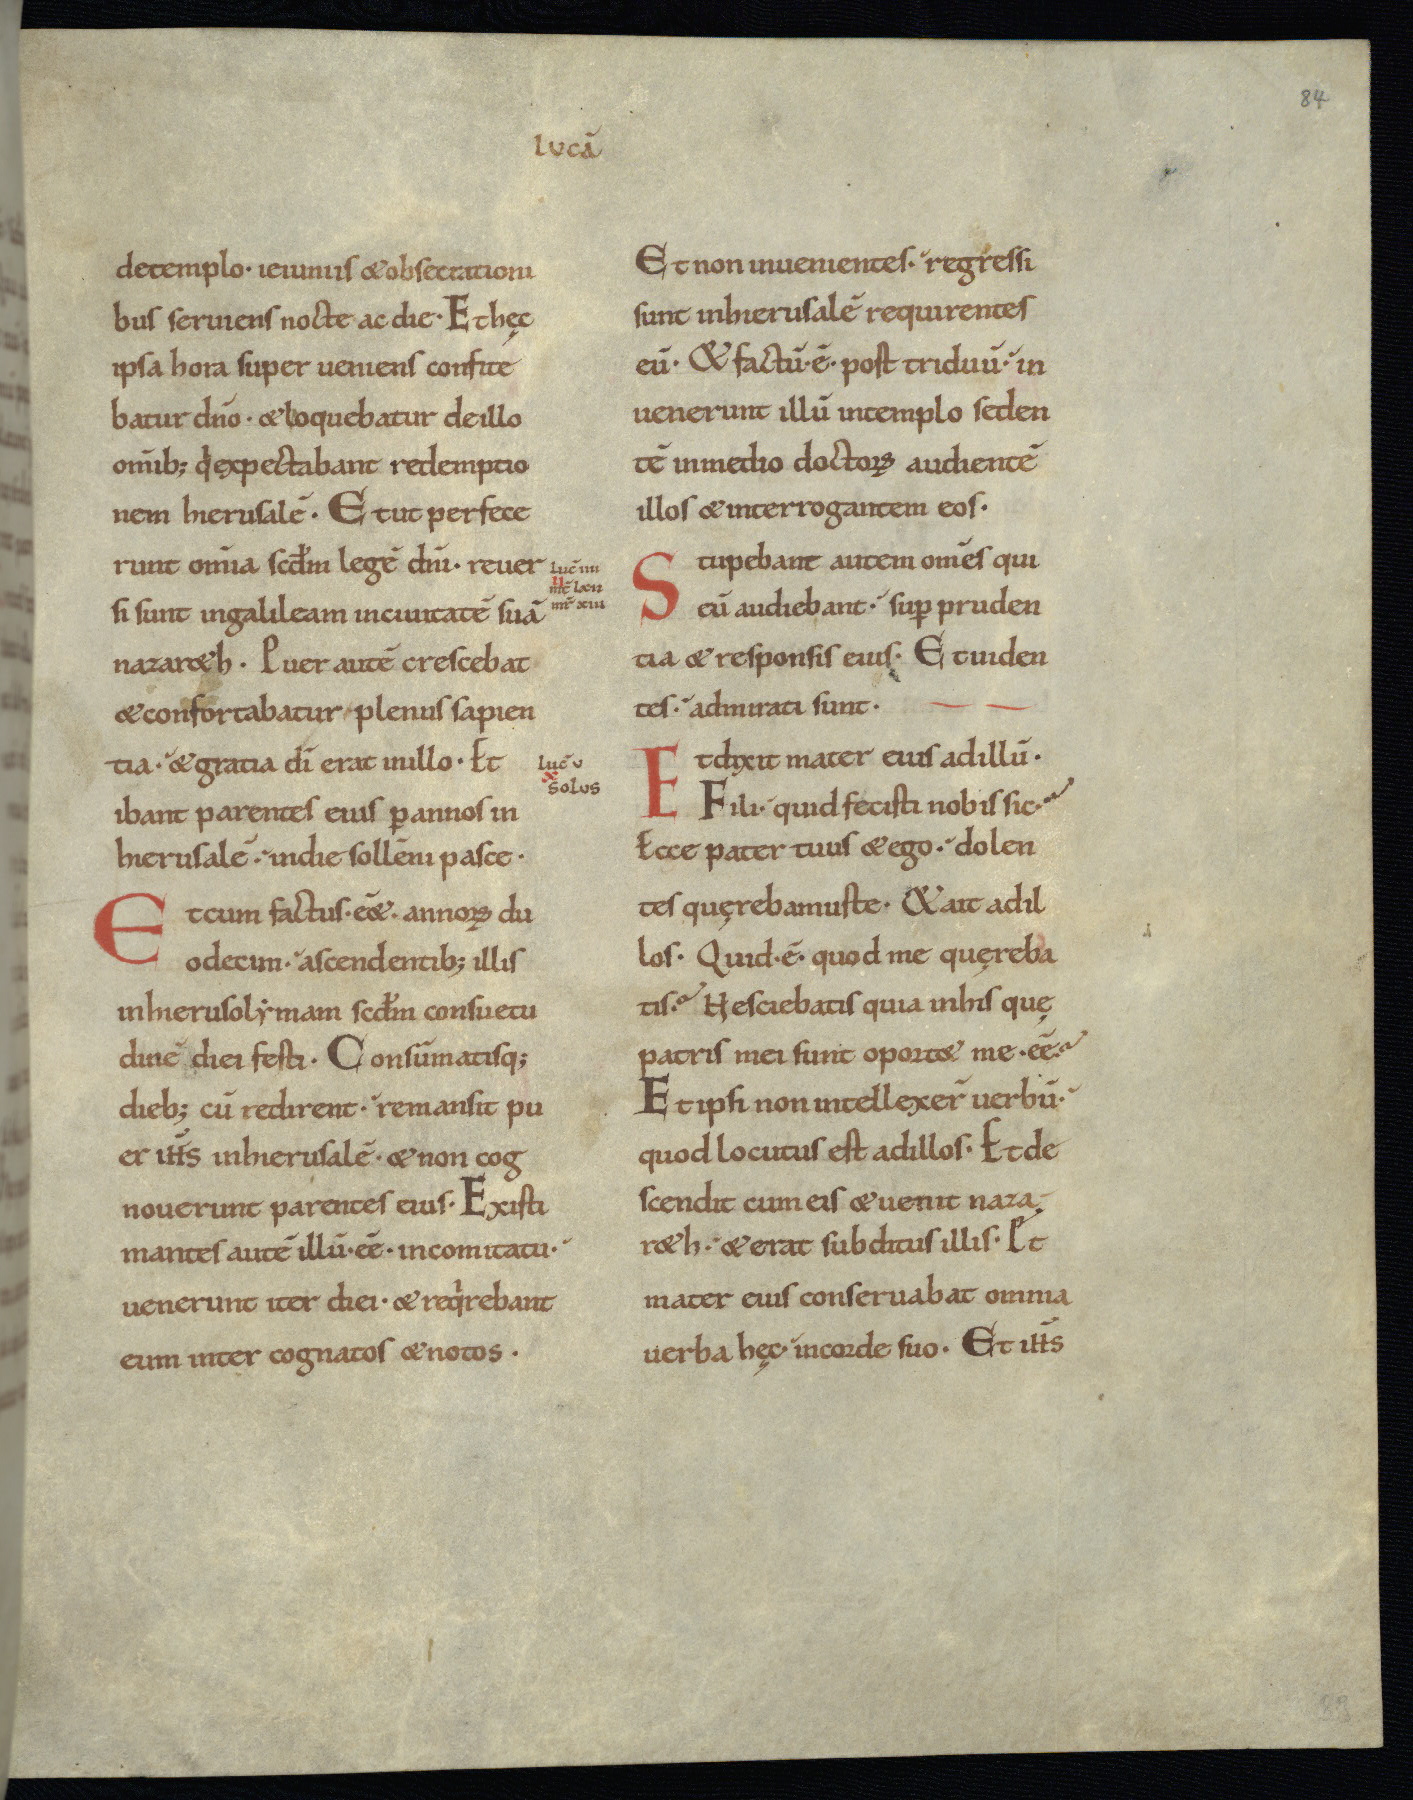 84
lucā
detemplo· ieiuniis &obsecrationi
bus seruiens nocte ac die· Et hęc
ipsa hora super ueniens confite
batur dño· &loquebatur deillo
omīb; q̇ expectabant redemptio
nem hierusalē· Et ut perfece
runt omīa scđm legē dñi· reuer
si sunt ingalileam inciuitatē suā
nazar&h· Puer autē crescebat
&confortabatur plenus sapien
tia· &gratia dī erat inillo· Et
ibant parentes eius ꝑannos in
hierusalē· indie sollēni pasce·
Et cum factus·ēē&·annoꝝ du
odecim· ascendentib; illis
inhierusolẏmam scđm consuetu
dinē diei festi· Consūmatisq;
dieb; cū redirent· remansit pu
er ihs̄ inhierusalē· &non cog
nouerunt parentes eius· Existi
mantes autē illū·ēē·incomitatu·
uenerunt iter diei· &reqͥrebant
eum inter cognatos &notos·
luc̄ iiii
solus
luc̄ v
Et non inuenientes· regressi
sunt inhierusalē requirentes
eū· & factū·ē· post triduū· in
uenerunt illū intemplo seden
tē inmedio doctoꝝ audientē
illos &interrogantem eos·
Stupebant autem omēs qui
eū audiebant· suꝑ pruden
tia & responsis eius· Et uiden
tes· admirati sunt·
Et dixit mater eius adillū·
Fili· quid fecisti nobis sic·
Ecce pater tuus &ego· dolen
tes quęrebamuste· & ait adil
los· Quid·ē· quod me quęreba
tis· Nesciebatis quia inhis quę
patris mei sunt oport& me·ēē·
Et ipsi non intellexer̄ uerbū·
quod locutus est adillos· Et de
scendit cum eis &uenit naza
r&h· &erat subditus illis· Et
mater eius conseruabat omnia
uerba hęc· incorde suo· Et ihs̄